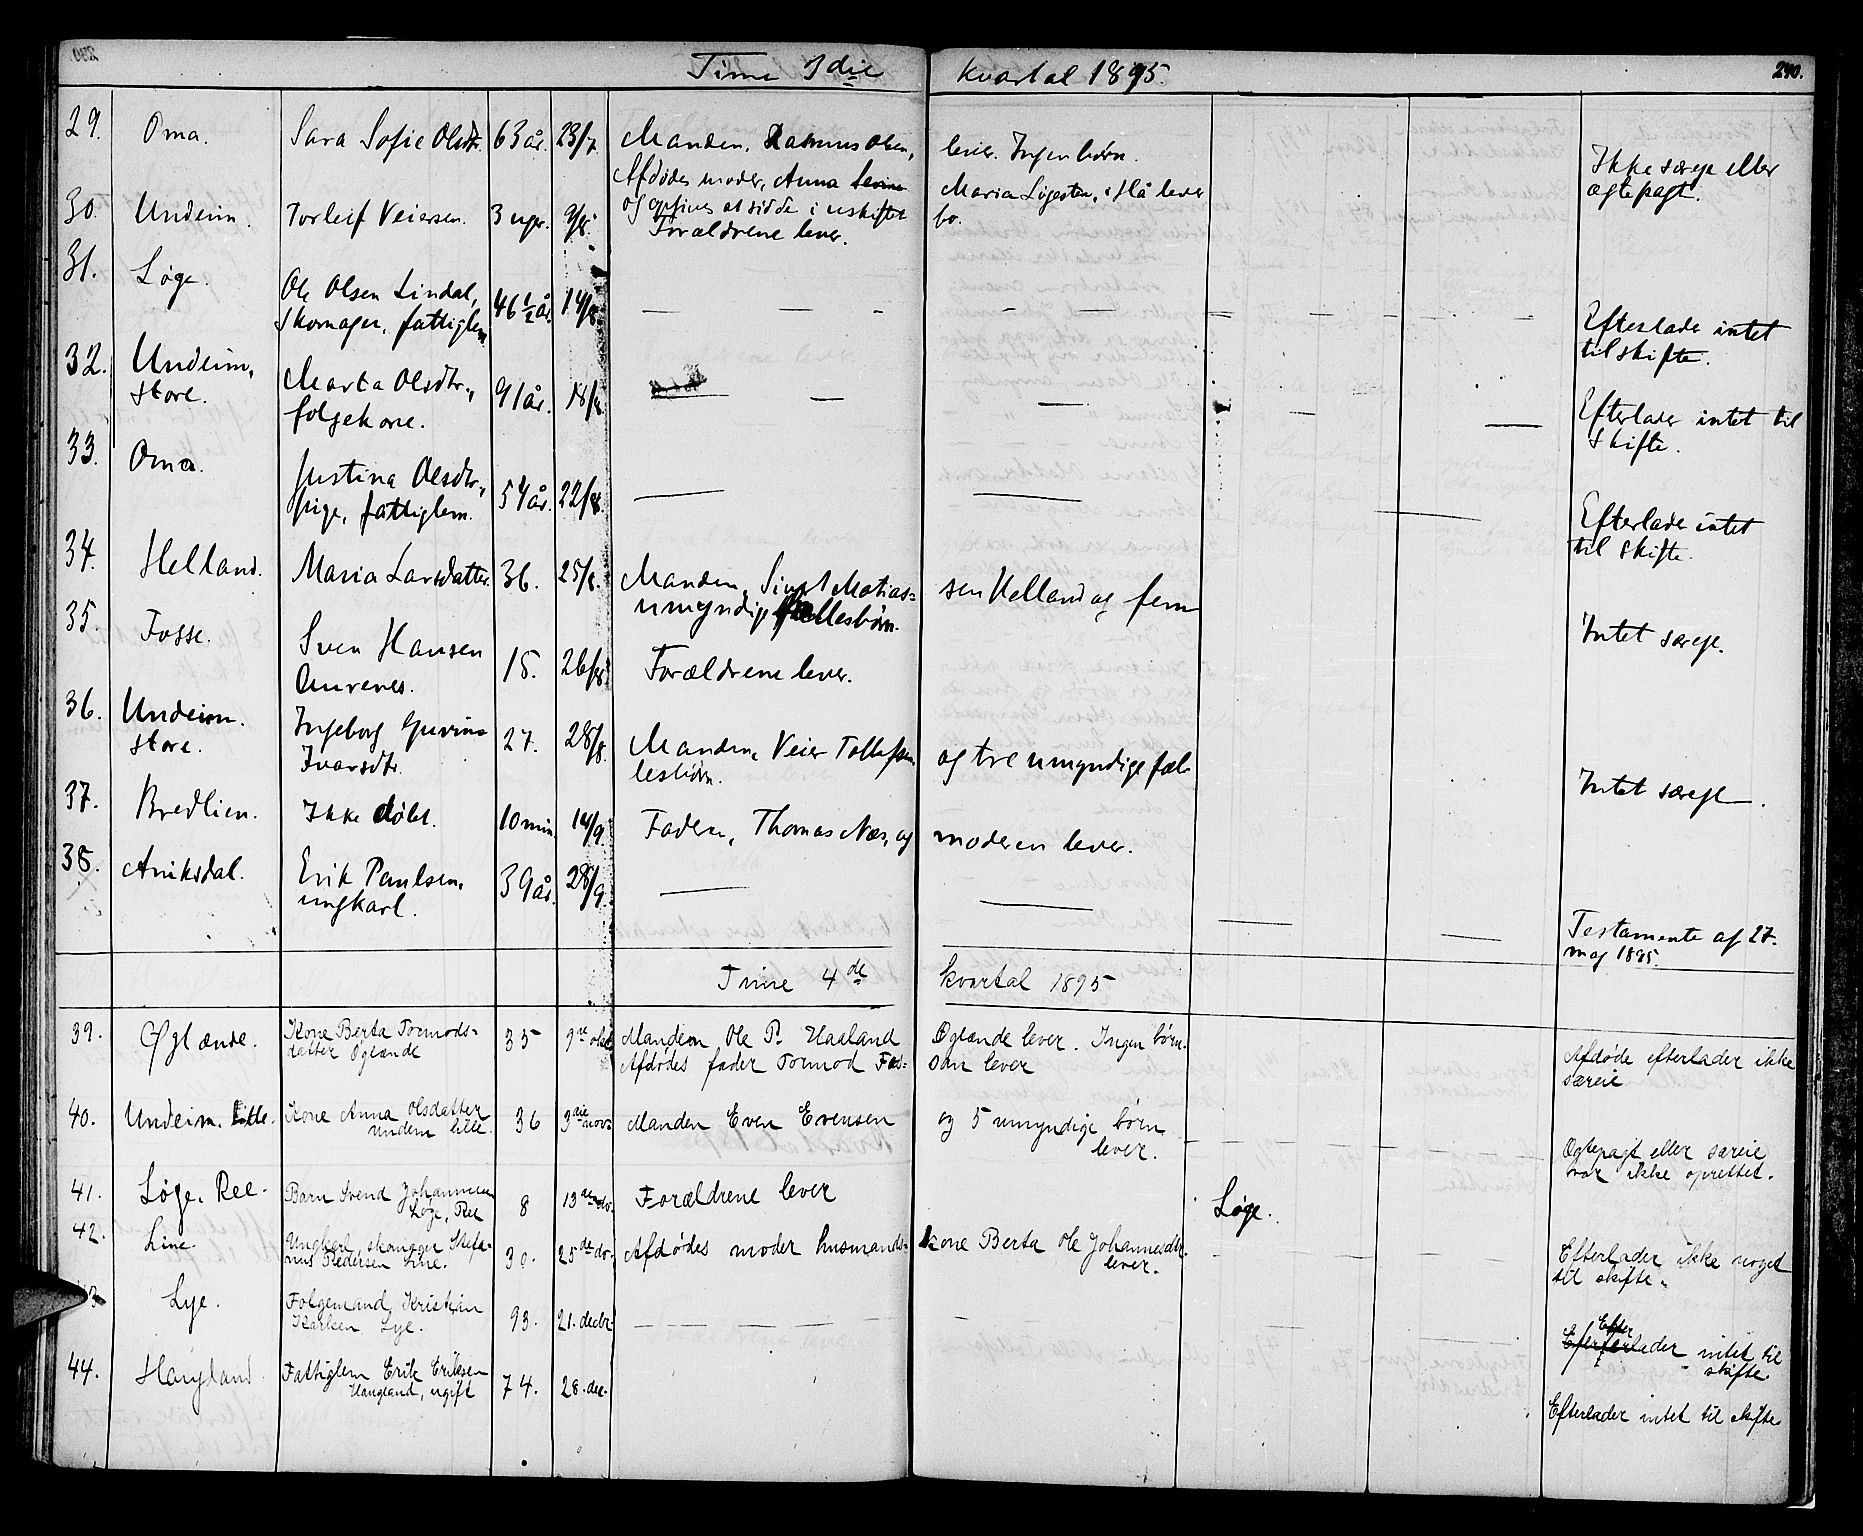 Time 3die kvartal 1895. 240.
29. Oma. Sara Sofie Olsdtr. 63 år. 23/7. Manden, Rasmus Olsen, lever. Ingen børn.
Afdødes moder, Anna Maria Ligesten, Hå lever
og agtives at sidde i uskiftet bo.
Ikke særeje eller
ægtepagt.
30. Undeim. Torleif Veiersen. 3 uger. Forældrene lever.
31. Løge. Ole Olsen Lindal, 46 1/2 år. 14/8. — — - — — — —
Skomager, fattiglem.
Efterlade intet
til skifte.
32. Undeim, Marta Olsdtr., 91 år. 18/8. — — — — —
store. følgekone.
Efterlader intet til
skifte.
33. Oma. Justina Olesdtr., 54 år. 22/8. — — —
pige, fattiglem.
Efterlade intet
til skifte.
34. Helland. Maria Larsdatter. 36. 25/8. Manden, Sivert Matias= sen Helland og fem
umyndige fællesbørn.
Intet særeje.
35. Fosse. Sven Hansen 15. 26/8. Forældrene lever.
Aurenes.
36. Undeim. Ingeborg Gurine 27. 28/8. Manden, Veier Tollefsen, og tre umyndige fæl-
store. Ivarsdtr. lesbørn.
Intet særeje.
37. Bredlien. Ikke døbt. 10 min. 14/9. Faderen, Thomas Næs, og moderen lever.
38. Aniksdal. Erik Paulsen, 39 år. 28/9. — — — —
ungkarl.
Testamente af 27.
maj 1895.
Time 4de kvartal 1895
39. Øglænde. Kone Berta Tormods= 35 9de okt Manden Ole P. Haaland Øglænde lever. Ingen børn.
datter Øglænde Afdødes fader Tormod Fos= san lever
Afdøde efterlader ikke
særeie
40. Undeim. Lille. Kone Anna Olsdatter 36 3die nov: Manden Even Evensen og 5 umyndige børn
Undem lille. lever.
Ægtepagt eller særeie
var ikke oprettet.
41. Løge. Ree. Barn Svend Johannesen 8 13de do. Forældrene lever Løge.
Løge, Ree
42. Line. Ungkarl, skomager Stefa- 30. 25de do. Afdødes moder husmands= kone Berta Ole Johannesdtr.
nus Pedersen Line. lever.
Efterlader ikke noget
til skifte.
43 Lye. Følgemand Kristian 93. 21. decbr. — — — — —
Karlsen Lye.
Efter
lader intet til
skifte.
44. Haugland. Fattiglem Erik Eriksen 74. 28. dec.
Haugland, ugift
Efterlader intet til skifte.